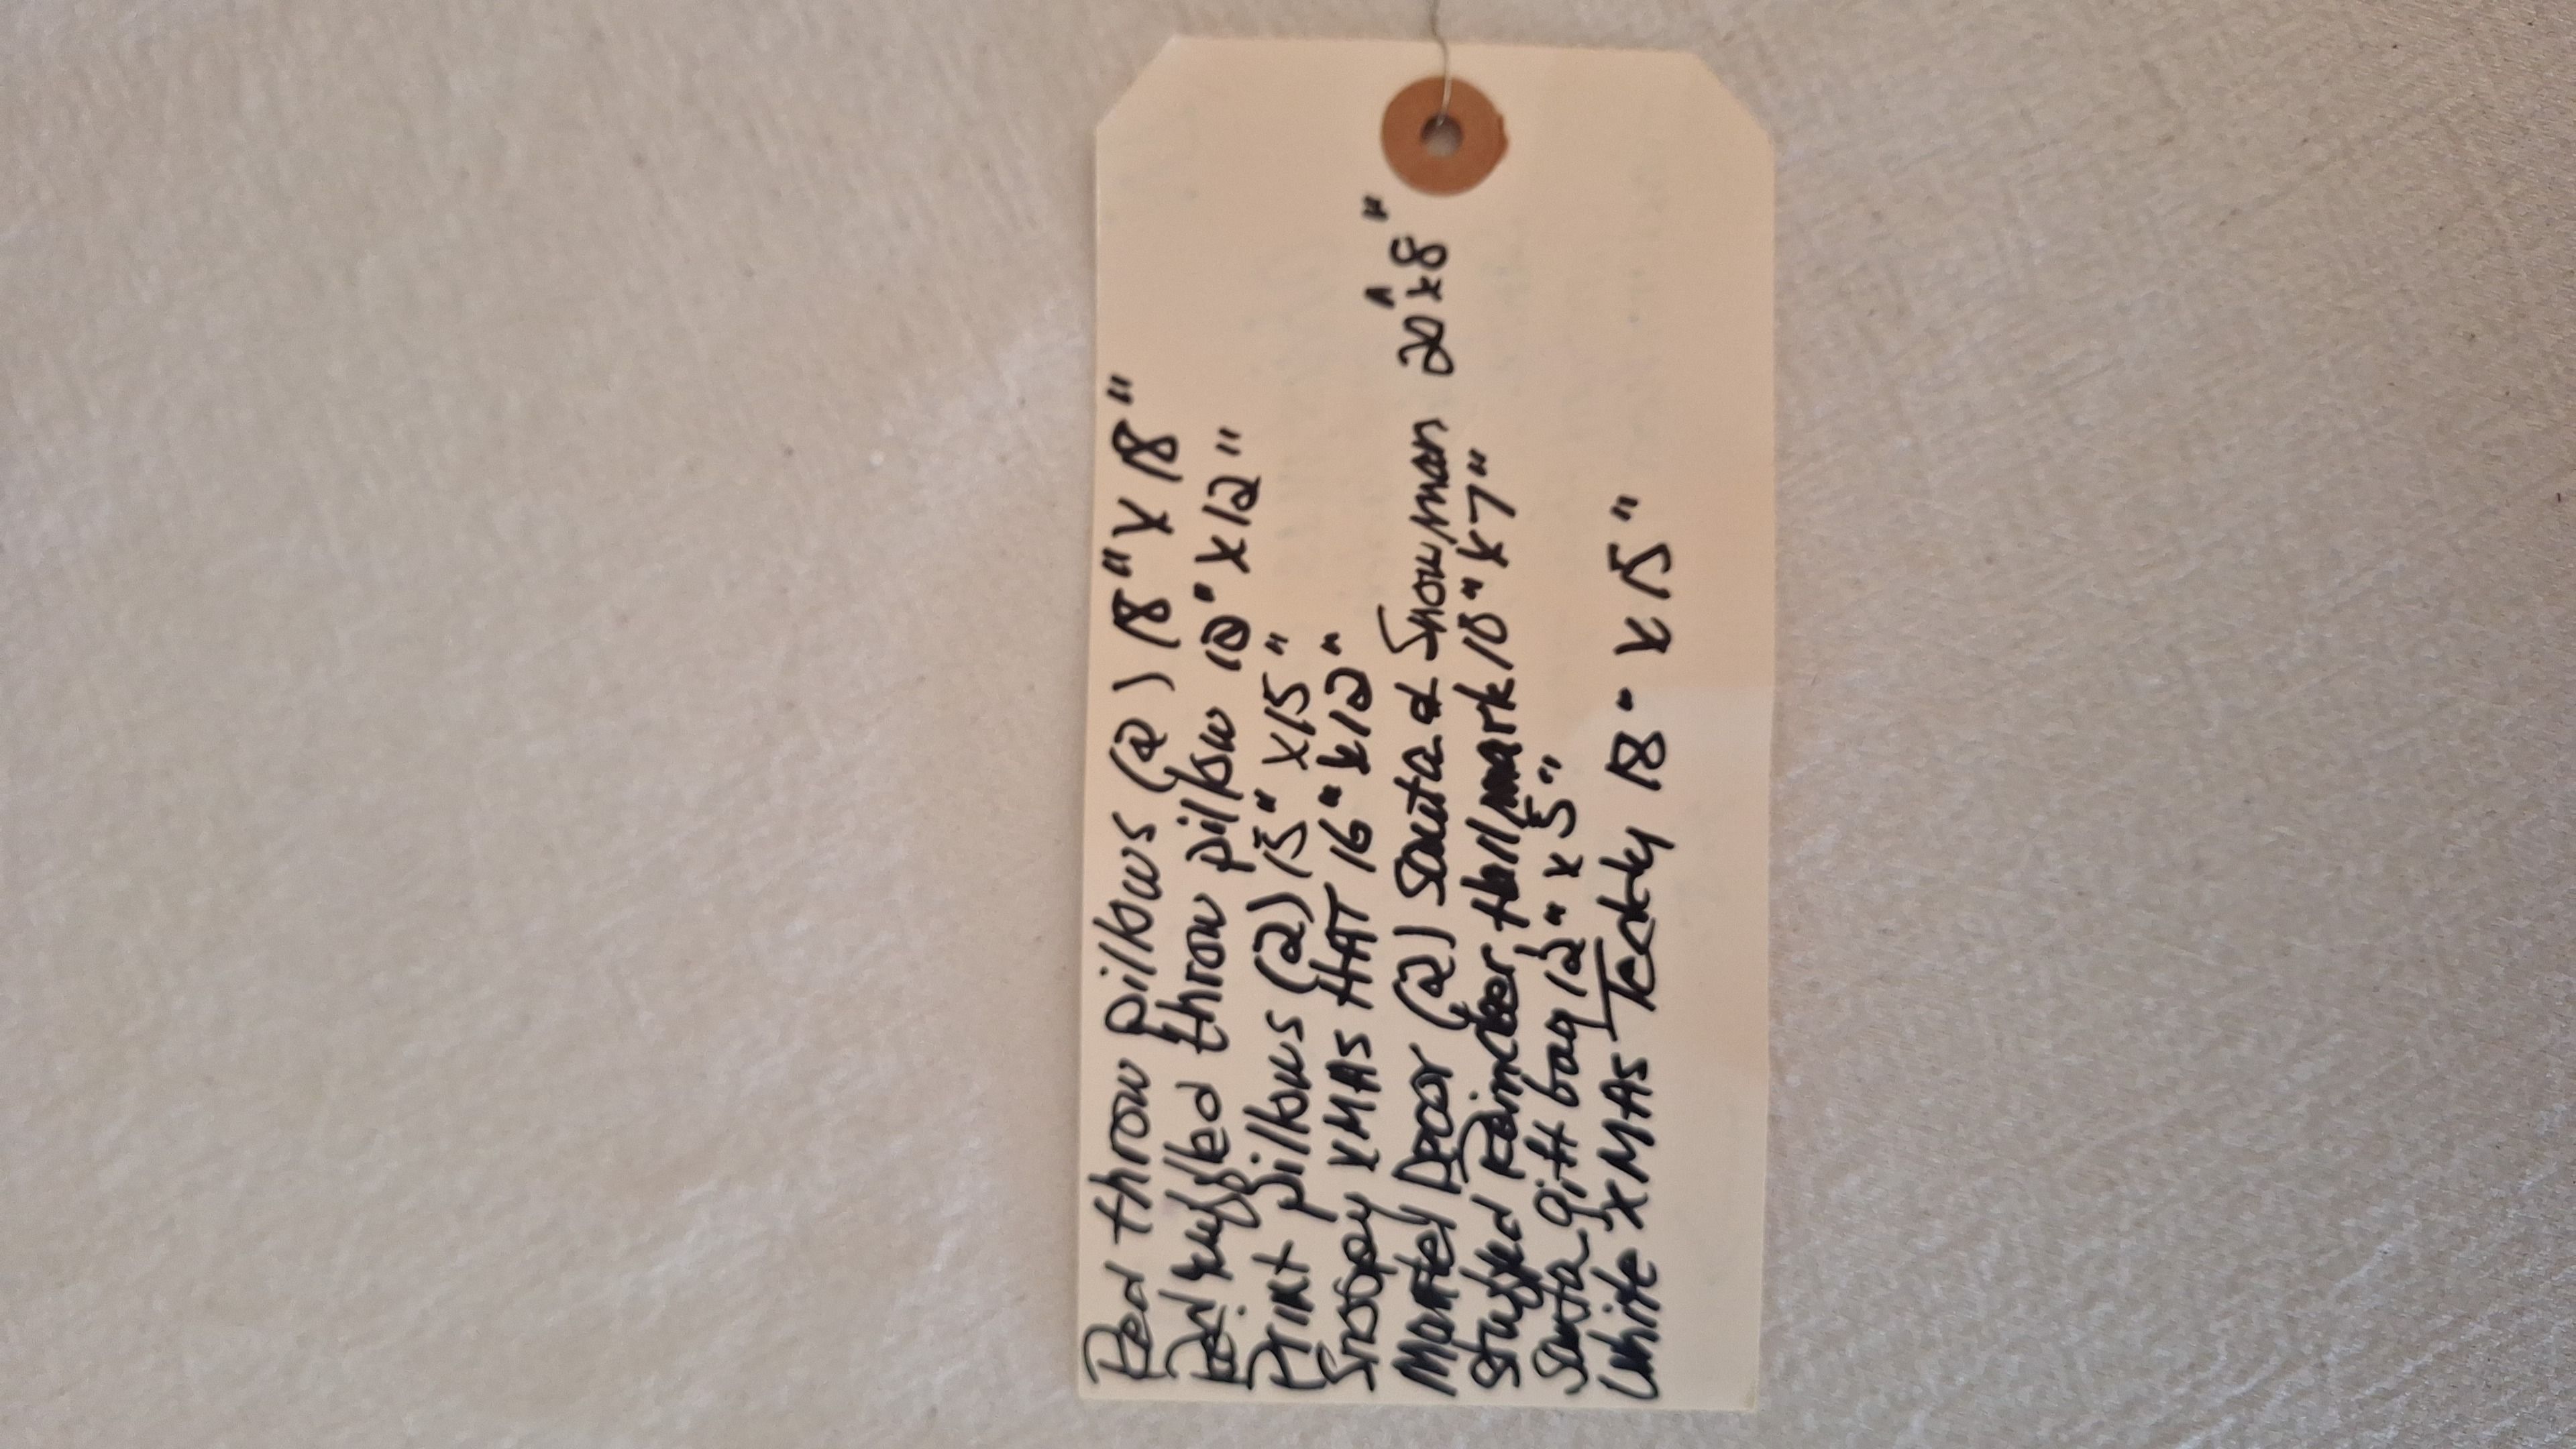 Red throw pillows (2) 18" X 18"
Red ruffled throw pillow 12" X 12"
Print pillows (2) 15" X 15"
Snoopy XMAS HAT 16" X 12"
Mantel Decor (2) Santa & Snowman 20" x 8"
Stuffed Reindeer Hallmark 18" x 7"
Santa gift bag 12" x 5"
White XMAS Teddy 18" X 15"